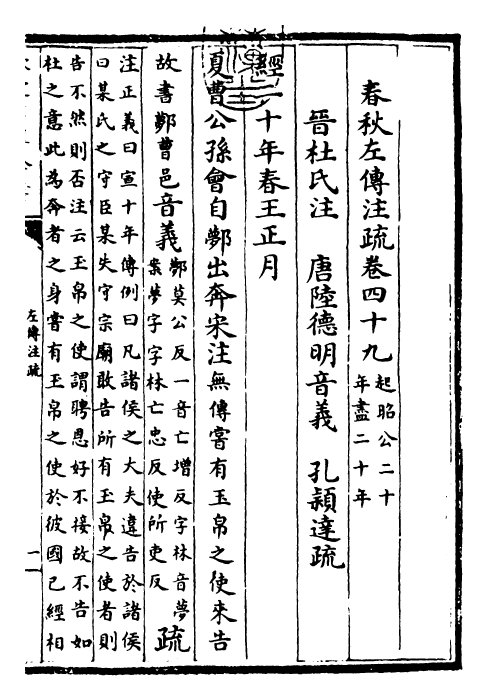 春秋左傳注疏卷四十九
起昭公二十
年盡二十年
晉杜氏注　唐陸德明音義　孔穎達疏
經二十年春王正月
夏曹公孫會自鄸出奔宋注無傳嘗有玉帛之使來告
故書鄸曹邑音義
鄸莫公反一音亡增反字林音夢
案夢字字林亡忠反使所吏反
疏
注正義曰宣十年傳例曰凡諸侯之大夫違告於諸侯
曰某氏之守臣某失守宗廟敢告所有玉帛之使者則
告不然則否注云玉帛之使謂聘恩好不接故不告如
杜之意此為奔者之身嘗有玉帛之使於彼國已經相
左傳注疏
一